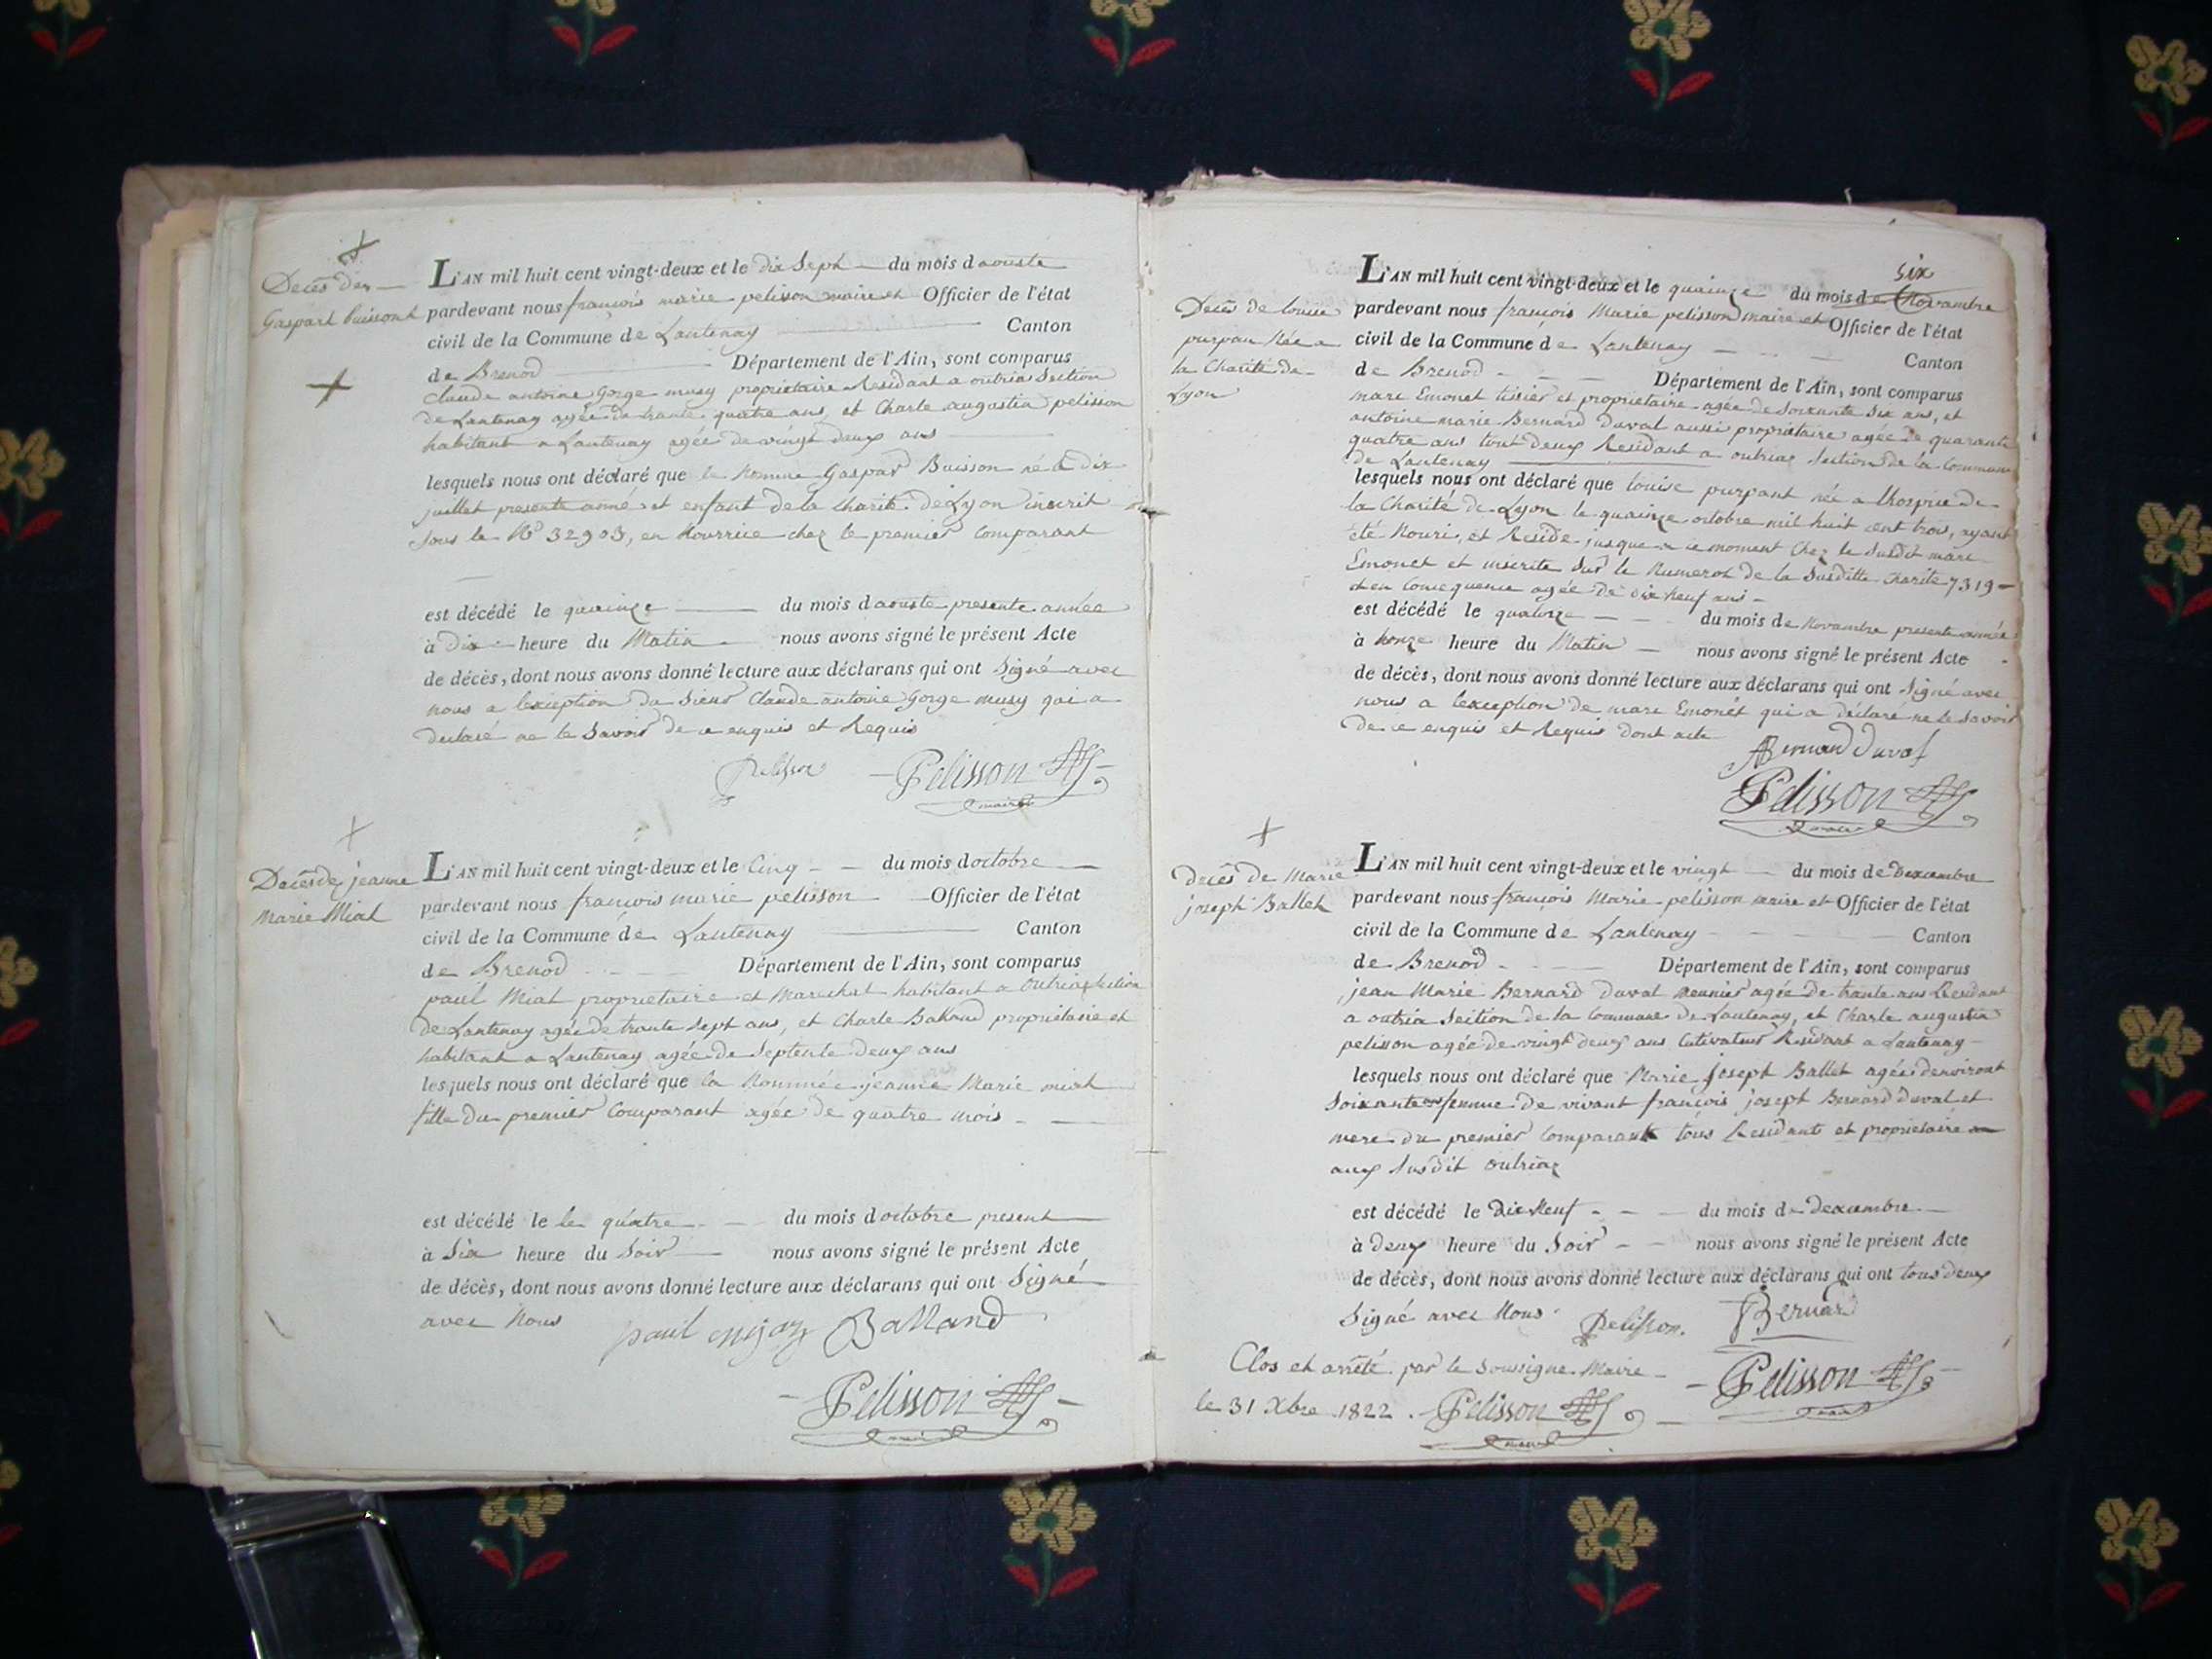 Decès de
Gaspart buissont
L'AN mil huit cent vingt-deux et le dix Sept du mois daouste
pardevant nous françois marie pelisson maire et Officier de l'état
civil de la Commune de Lantenay Canton
de Brenod Département de l'Ain, sont comparus
claude antoine Gorge musy proprietaire Residant a outria Section
de Lantenay agée de trante quatre ans, et Charle augustin pelisson
habitant a Lantenay agée de vingt deux ans
lesquels nous ont déclaré que le nomme Gaspar Buisson né le dix
juillet presente anné et enfant de la charité de Lyon inscrit
sous le N° 32903, en Nourrice chez le premier Comparant
est décédé le quainze du mois daouste presente année
à dix heure du Matin nous avons signé le présent Acte
de décès, dont nous avons donné lecture aux déclarans qui ont Signé avec
nous a lexception du Sieur Claude antoine Gorge musy qui a
declaré ne le Savoir de ce enquis et Requis
Pelisson Pelisson
maire
Decès de jeanne
Marie Miat
L'AN mil huit cent vingt-deux et le Cinq du mois doctobre
pardevant nous françois marie pelisson Officier de l'état
civil de la Commune de Lantenay Canton
de Brenod Département de l'Ain, sont comparus
paul Miat proprietaire et Marechal habitant a Outriaz Section
de Lantenay agée de trante Sept ans, et Charle Balland propriétaire et
habitant a Lantenay agée de Septente deux ans
lesquels nous ont déclaré que la Nommée jeanne Marie miat
fille du premier Comparant agée de quatre mois
est décédé le le quatre du mois doctobre present
à Six heure du Soir nous avons signé le présent Acte
de décès, dont nous avons donné lecture aux déclarans qui ont Signé
avec Nous paul Balland
Pelisson
maire
Decès de louise
purpan Née a
la Charité de
Lyon
six
L'AN mil huit cent vingt-deux et le quainze du mois de Novambre
pardevant nous françois Marie pelisson maire et Officier de l'état
civil de la Commune de Lantenay Canton
de Brenod Département de l'Ain, sont comparus
marc Emonet tissier et proprietaire agée de Soixante Six ans, et
antoine marie Bernard Duval aussi propriétaire agée de quarante
quatre ans tout deux Residant a outriaz Section de la Commune
de Lantenay
lesquels nous ont déclaré que louise purpant née a lhospice de
la Charité de Lyon le quainze octobre mil huit cent trois, ayant
été Nouri, et Reside jusque a ce moment Chez le Susdit marc
Emonet et inscrite Sur le Numerot de la Susditte Charite 7319
et en Consequence agée de dix neuf ans
est décédé le quatorze du mois de Novambre presente année
à honze heure du Matin nous avons signé le présent Acte
de décès, dont nous avons donné lecture aux déclarans qui ont Signé avec
nous a lexception de marc Emonet qui a déclaré ne le Savoir
de ce enquis et Requis dont acte
ABernard Duval
Pelisson
maire
decès de Marie
joseph Ballet
L'AN mil huit cent vingt-deux et le vingt du mois de Dexambre
pardevant nous françois Marie pelisson maire et Officier de l'état
civil de la Commune de Lantenay Canton
de Brenod Département de l'Ain, sont comparus
jean Marie Bernard Duval meunier agée de trante ans Residant
a outria Section de la Commune de Lantenay, et Charle augustin
pelisson agée de vingt deux ans Cutivateur Residant a Lantenay
lesquels nous ont déclaré que Marie joseph Ballet agée denviront
Soixante ans femme de vivant françois joseph Bernard Duval et
mere du premier Comparant tous Residants et propriétaire
aux Susdit outriaz
est décédé le Dix Neuf du mois de Dexambre
à deux heure du Soir nous avons signé le présent Acte
de décès, dont nous avons donné lecture aux déclarans qui ont tous deux
Signé avec Nous Pelisson. Bernard
Clos et arrêté par le soussigne Maire Pelisson
le 31 Xbre 1822. Pelisson maire
maire